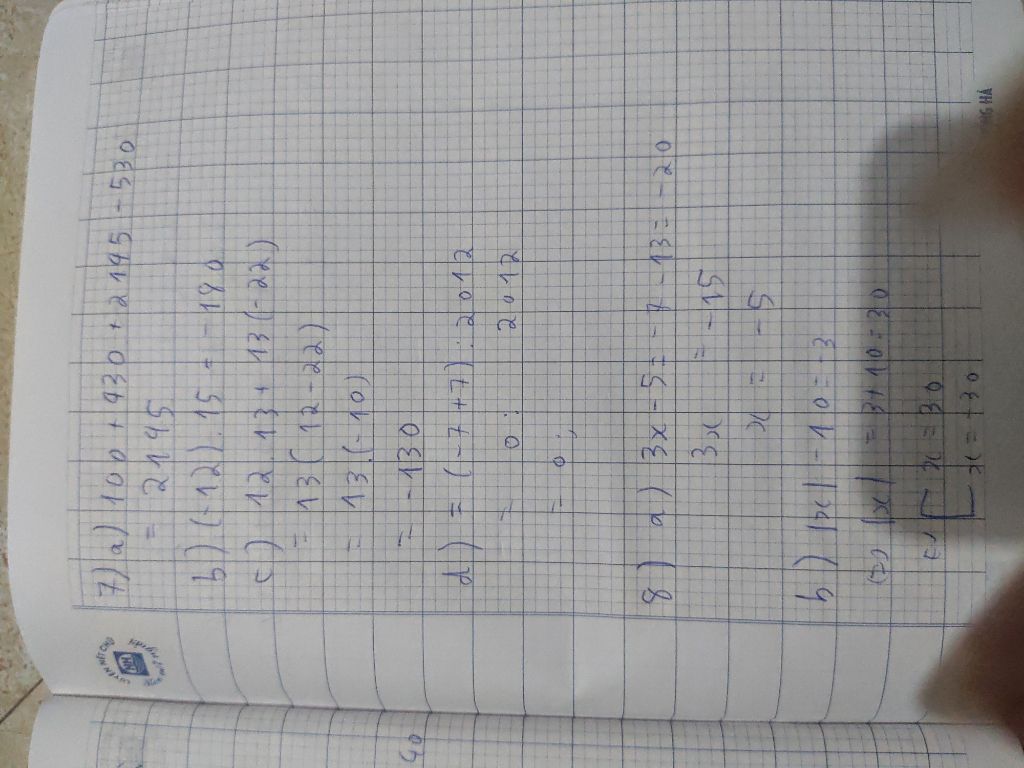 7) a) 100 + 430 + 2145 - 530
= 2145
b) (-12) . 15 = - 180
c) 12 . 13 + 13 (-22)
= 13 (12 - 22)
= 13 . (-10)
= - 130
d) = (-7 + 7) : 2012
= 0 : 2012
= 0;
8) a) 3x - 5 = - 7 - 13 = - 20
3x = - 15
x = - 5
b) |x| - 10 = - 3
|x| = 3 + 10 = 30
x = 30
x = - 30
40